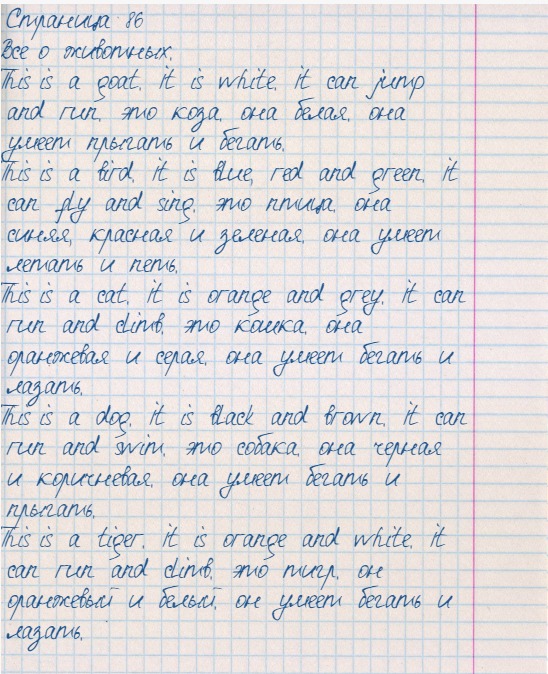 Страница 86
Все о животных.
This is a goat. it is white. it can jump
and run. это коза. она белая. она
умеет прыгать и бегать.
This is a bird. it is blue, red and green. it
can fly and sing. это птица. она
синяя, красная и зеленая. она умеет
летать и петь.
This is a cat. it is orange and grey. it can
run and climb. это кошка. она
оранжевая и серая. она умеет бегать и
лазать.
This is a dog. it is black and brown. it can
run and swim. это собака. она черная
и коричневая. она умеет бегать и
прыгать.
This is a tiger. it is orange and white. it
can run and climb. это тигр. он
оранжевый и белый. он умеет бегать и
лазать.